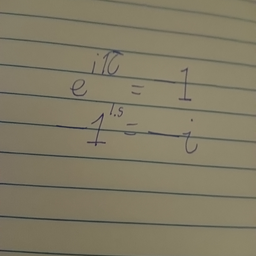 e^{iπ} = -1
-1^{1.5} = -i